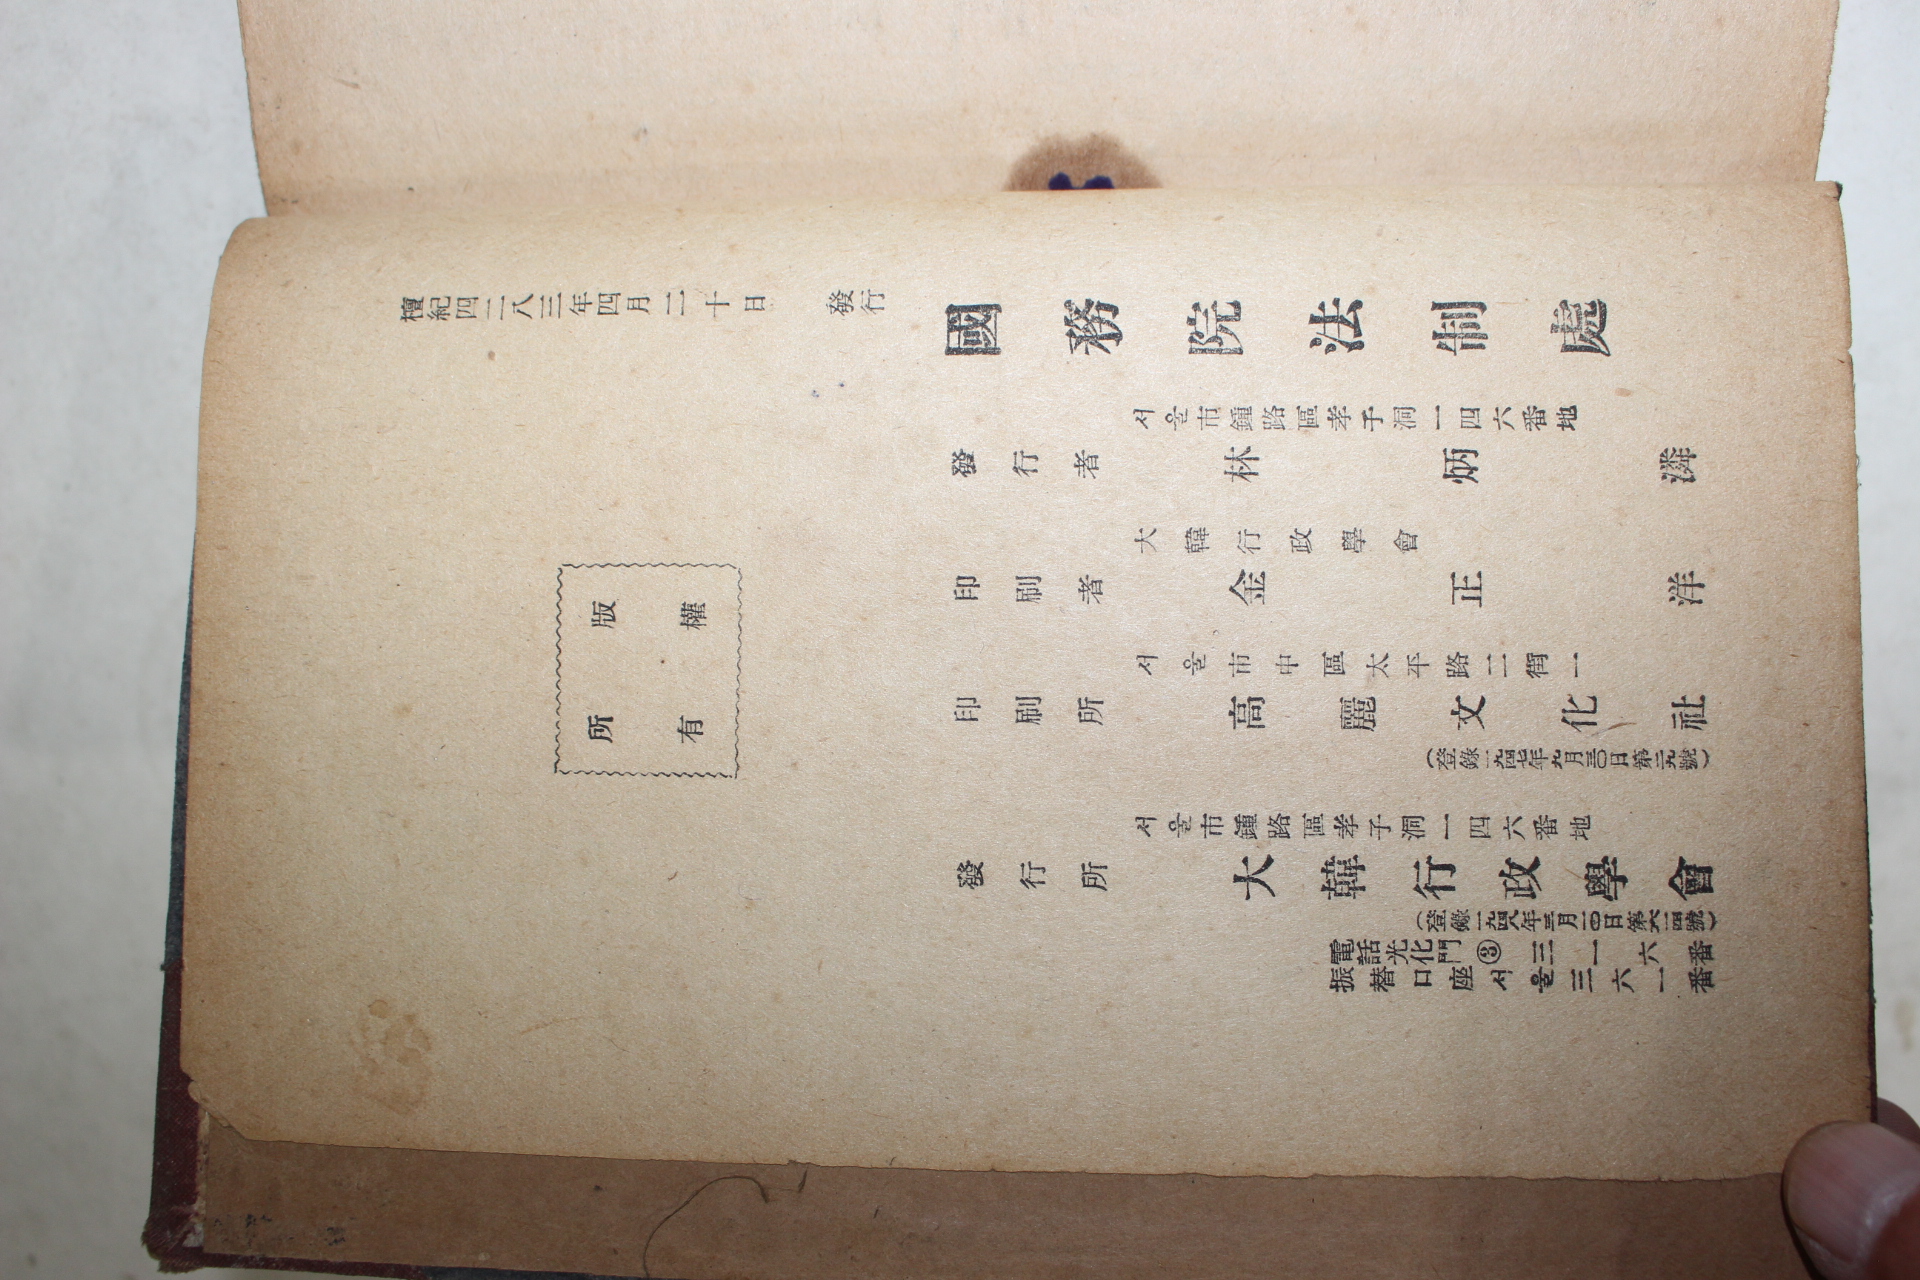 檀紀四二八三年四月二十日 發行
國務院法制處
서울市鍾路區孝子洞一四六番地
發行者 林炳潾
大韓行政學會
版權
所有
印刷者 金正洋
서울市中區太平路二街一
印刷所 高麗文化社
(登錄一九四七年九月三〇日第二九號)
서울市鍾路區孝子洞一四六番地
發行所 大韓行政學會
(登錄一九四八年三月一四日第六一四號)
電話光化門③三一六番
振替口座서울三六一番